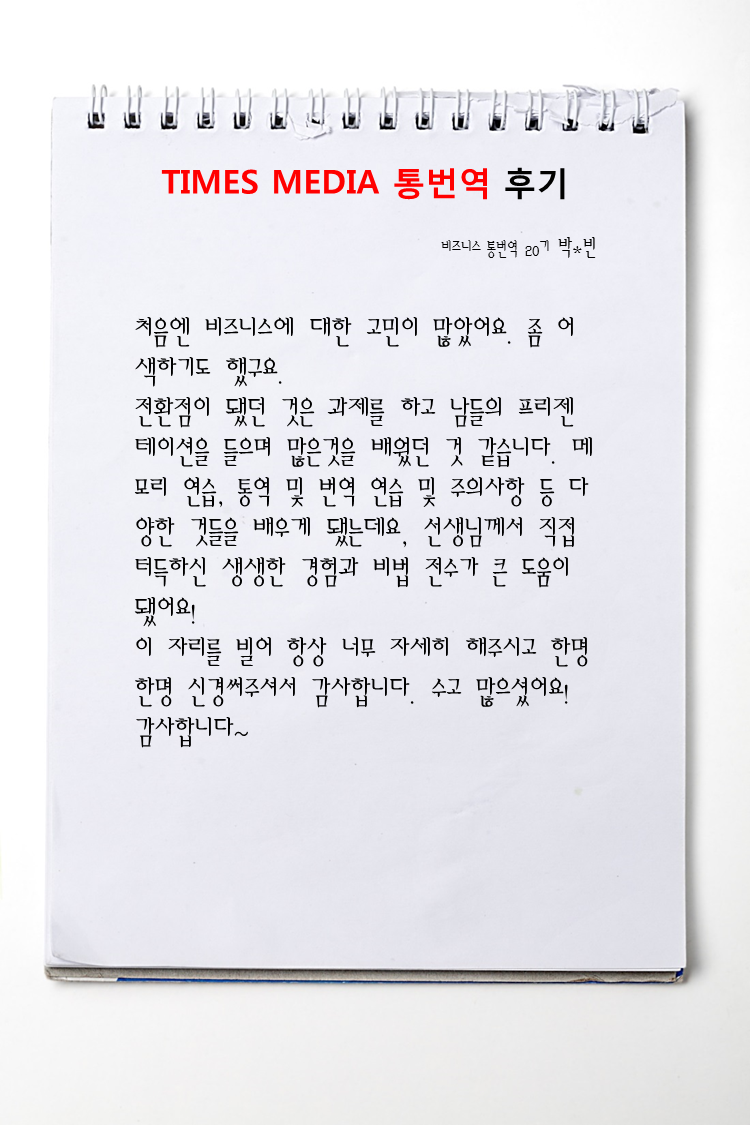 TIMES MEDIA 통번역 후기
비즈니스 통번역 20기 박*빈
처음엔 비즈니스에 대한 고민이 많았어요. 좀 어
색하기도 했구요.
전환점이 됐던 것은 과제를 하고 남들의 프리젠
테이션을 들으며 많은것을 배웠던 것 같습니다. 메
모리 연습, 통역 및 번역 연습 및 주의사항 등 다
양한 것들을 배우게 됐는데요, 선생님께서 직접
터득하신 생생한 경험과 비법 전수가 큰 도움이
됐어요!
이 자리를 빌어 항상 너무 자세히 해주시고 한명
한명 신경써주셔서 감사합니다. 수고 많으셨어요!
감사합니다~